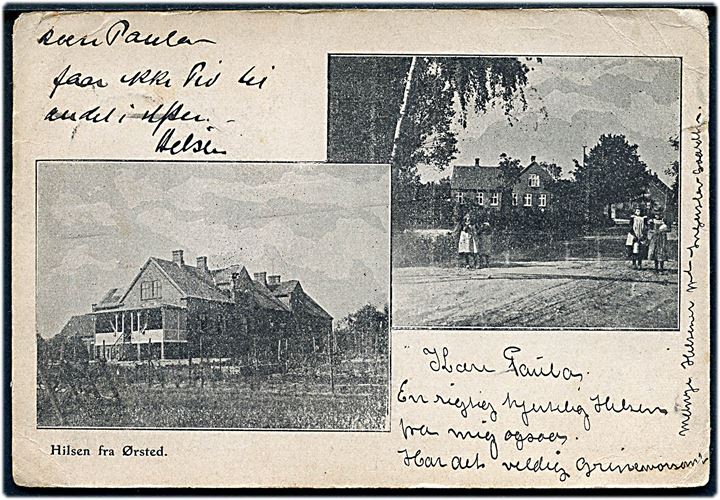 Kære Paula
faar ikke Tid til
andet i Aften. -
Helsen
Hilsen fra Ørsted.
Kære Paula,
En rigtig hjertelig Hilsen
fra mig ogsaa.
Har det veldig
mange Hilsener